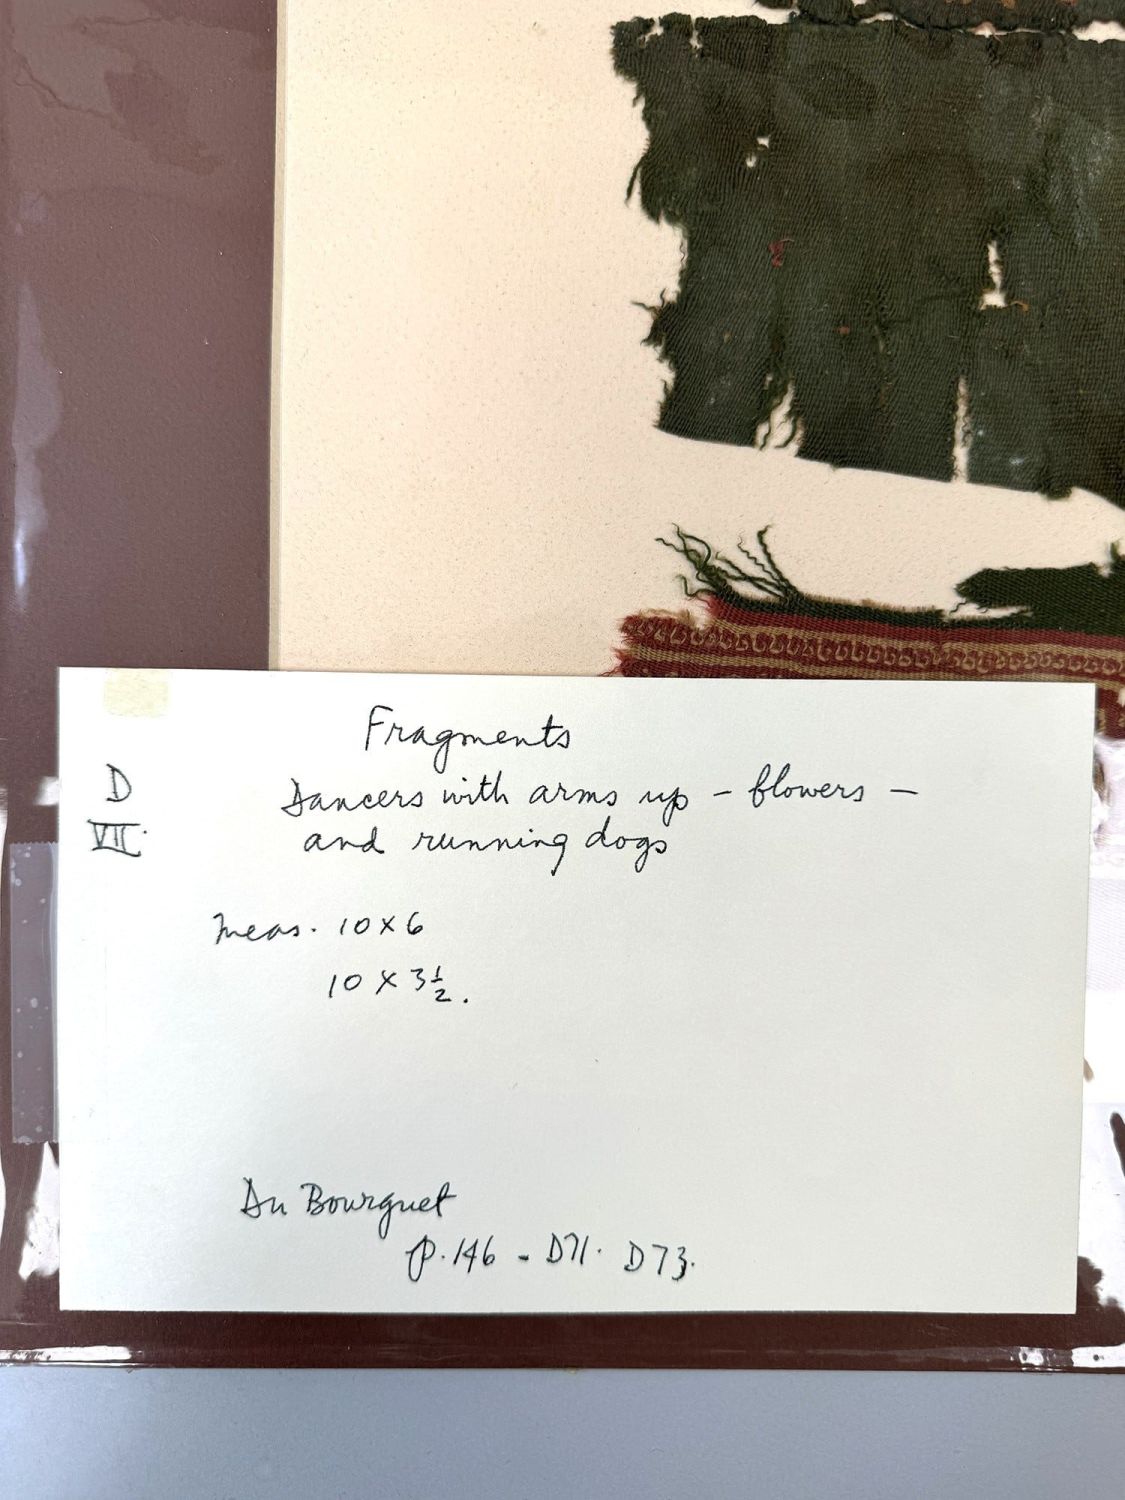 Fragments
D
VII.
Dancers with arms up - flowers -
and running dogs
Meas. 10 x 6
10 x 3 1/2.
Du Bourguet
p. 146 - D71. D73.